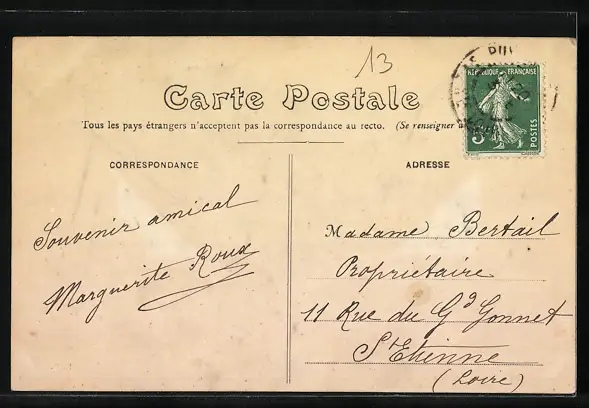 13
Carte Postale
Tous les pays étrangers n'acceptent pas la correspondance au recto. (Se renseigner
RÉPUBLIQUE FRANÇAISE
5
POSTES
CORRESPONDANCE
Souvenir amical
Marguerite Roux
ADRESSE
Madame Bertail
Propriétaire
11 Rue du Gd Gonnet
St Etienne
(Loire)